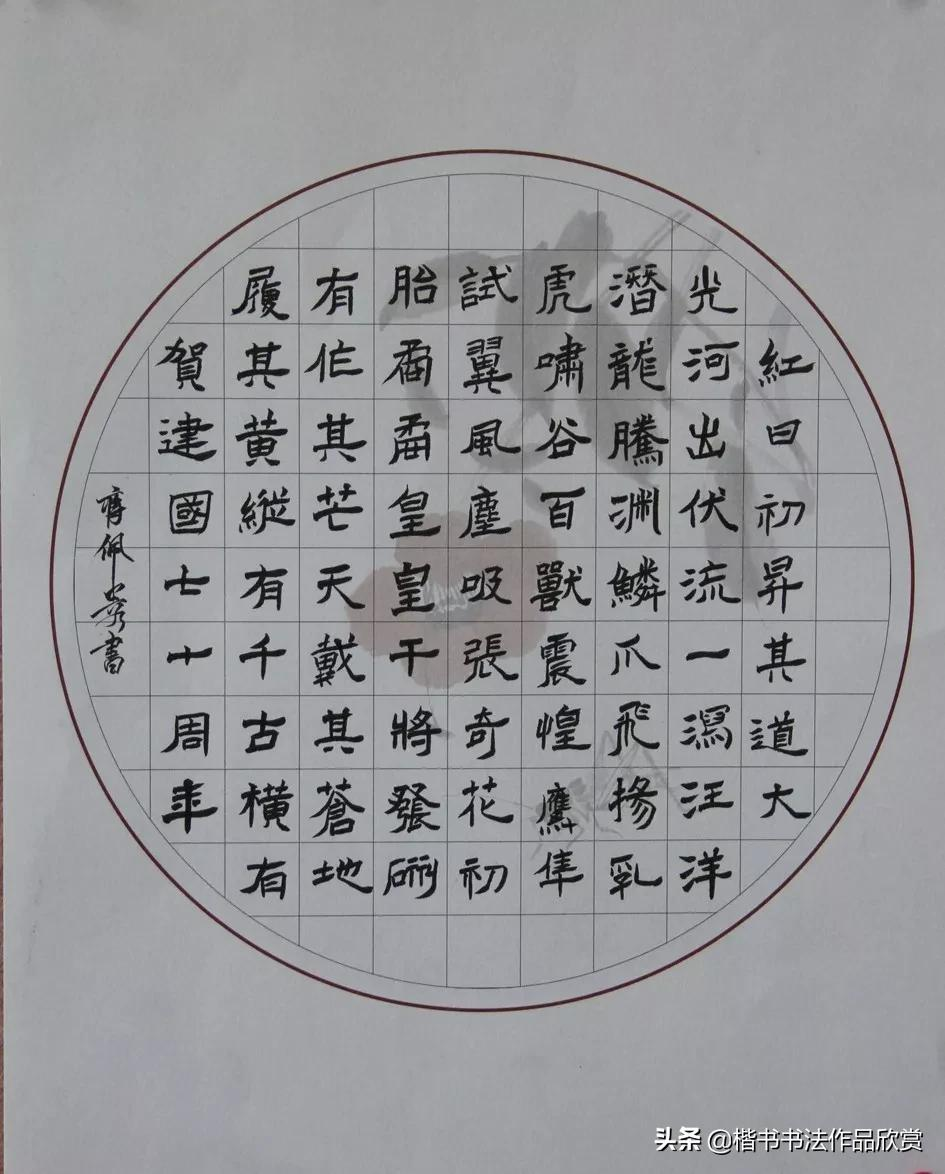 紅日初昇其道大
光河出伏流一瀉汪洋
潛龍騰渊鱗爪飛揚乳
虎嘯谷百獸震惶鷹隼
試翼風塵吸張奇花初
胎矞矞皇皇干將發硎
有作其芒天戴其蒼地
履其黄縱有千古橫有
賀建國七十周年
佩書
头条 @楷书书法作品欣赏